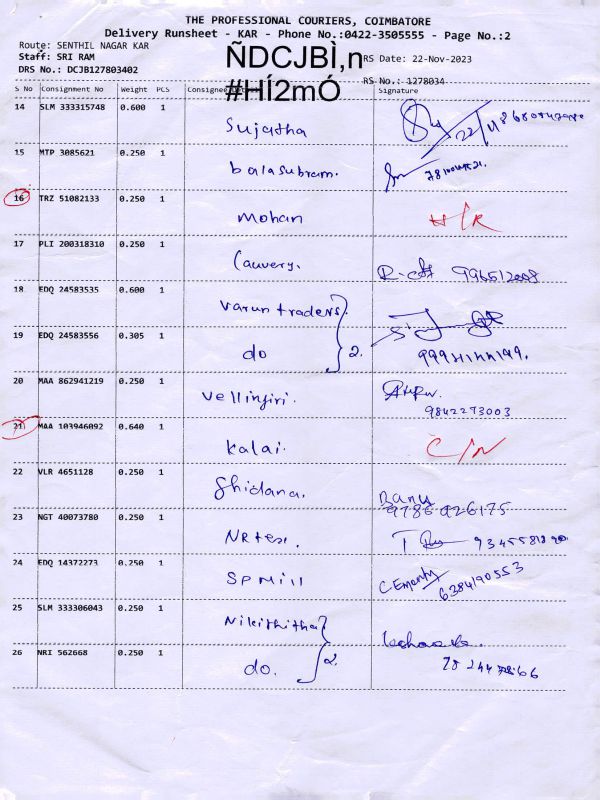 THE PROFESSIONAL COURIERS, COIMBATORE
Delivery Runsheet - KAR - Phone No.:0422-3505555 - Page No.:2
Route: SENTHIL NAGAR KAR
Staff: SRI RAM
DRS No.: DCJB127803402
ÑDCJBÌ,n
#HÍ2mÓ
RS Date: 22-Nov-2023
RS No.: 1278034
S No Consignment No Weight PCS Consignee Signature
14 SLM 333315748 0.600 1
Sujatha
15 MTP 3085621 0.250 1
balasubram.
16 TRZ 51082133 0.250 1
Mohan
17 PLI 200318310 0.250 1
Cauvery.
18 EDQ 24583535 0.600 1
Varun traders.
19 EDQ 24583556 0.305 1
do 2.
20 MAA 862941219 0.250 1
Vellingiri.
9842273003
21 MAA 103946092 0.640 1
Kalai. C/N
22 VLR 4651128 0.250 1
Banu
9786926175
23 NGT 40073780 0.250 1
24 EDQ 14372273 0.250 1
SP Mill
6384190553
25 SLM 333306043 0.250 1
26 NRI 562668 0.250 1
do. 2.